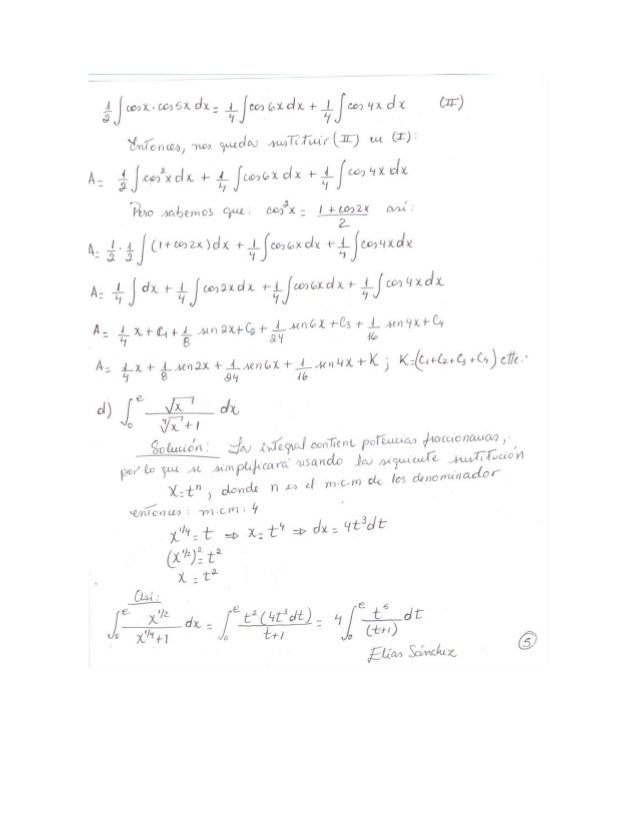 1/2 ∫ cosx · cos5x dx = 1/4 ∫ cos6x dx + 1/4 ∫ cos4x dx (II)
Entonces, nos queda sustituir (II) en (I):
A = 1/2 ∫ cos²x dx + 1/4 ∫ cos6x dx + 1/4 ∫ cos4x dx
Pero sabemos que: cos²x = (1 + cos2x)/2 así:
A = 1/2 · 1/2 ∫ (1 + cos2x) dx + 1/4 ∫ cos6x dx + 1/4 ∫ cos4x dx
A = 1/4 ∫ dx + 1/4 ∫ cos2x dx + 1/4 ∫ cos6x dx + 1/4 ∫ cos4x dx
A = 1/4 x + C₁ + 1/8 sen2x + C₂ + 1/24 sen6x + C₃ + 1/16 sen4x + C₄
A = 1/4 x + 1/8 sen2x + 1/24 sen6x + 1/16 sen4x + K ; K = (C₁+C₂+C₃+C₄) ctte.
d) ∫₀ᵉ √x / (⁴√x + 1) dx
Solución: La integral contiene potencias fraccionarias,
por lo que se simplificará usando la siguiente sustitución
X = tⁿ, donde n es el m.c.m de los denominador
entonces: m.c.m: 4
x^(1/4) = t ⇒ x = t⁴ ⇒ dx = 4t³dt
(x^(1/2))² = t²
x = t²
Así:
∫₀ᵉ x^(1/2) / (x^(1/4) + 1) dx = ∫₀ᵉ t²(4t³dt) / (t+1) = 4 ∫₀ᵉ t⁵ / (t+1) dt
Elías Sánchez
5